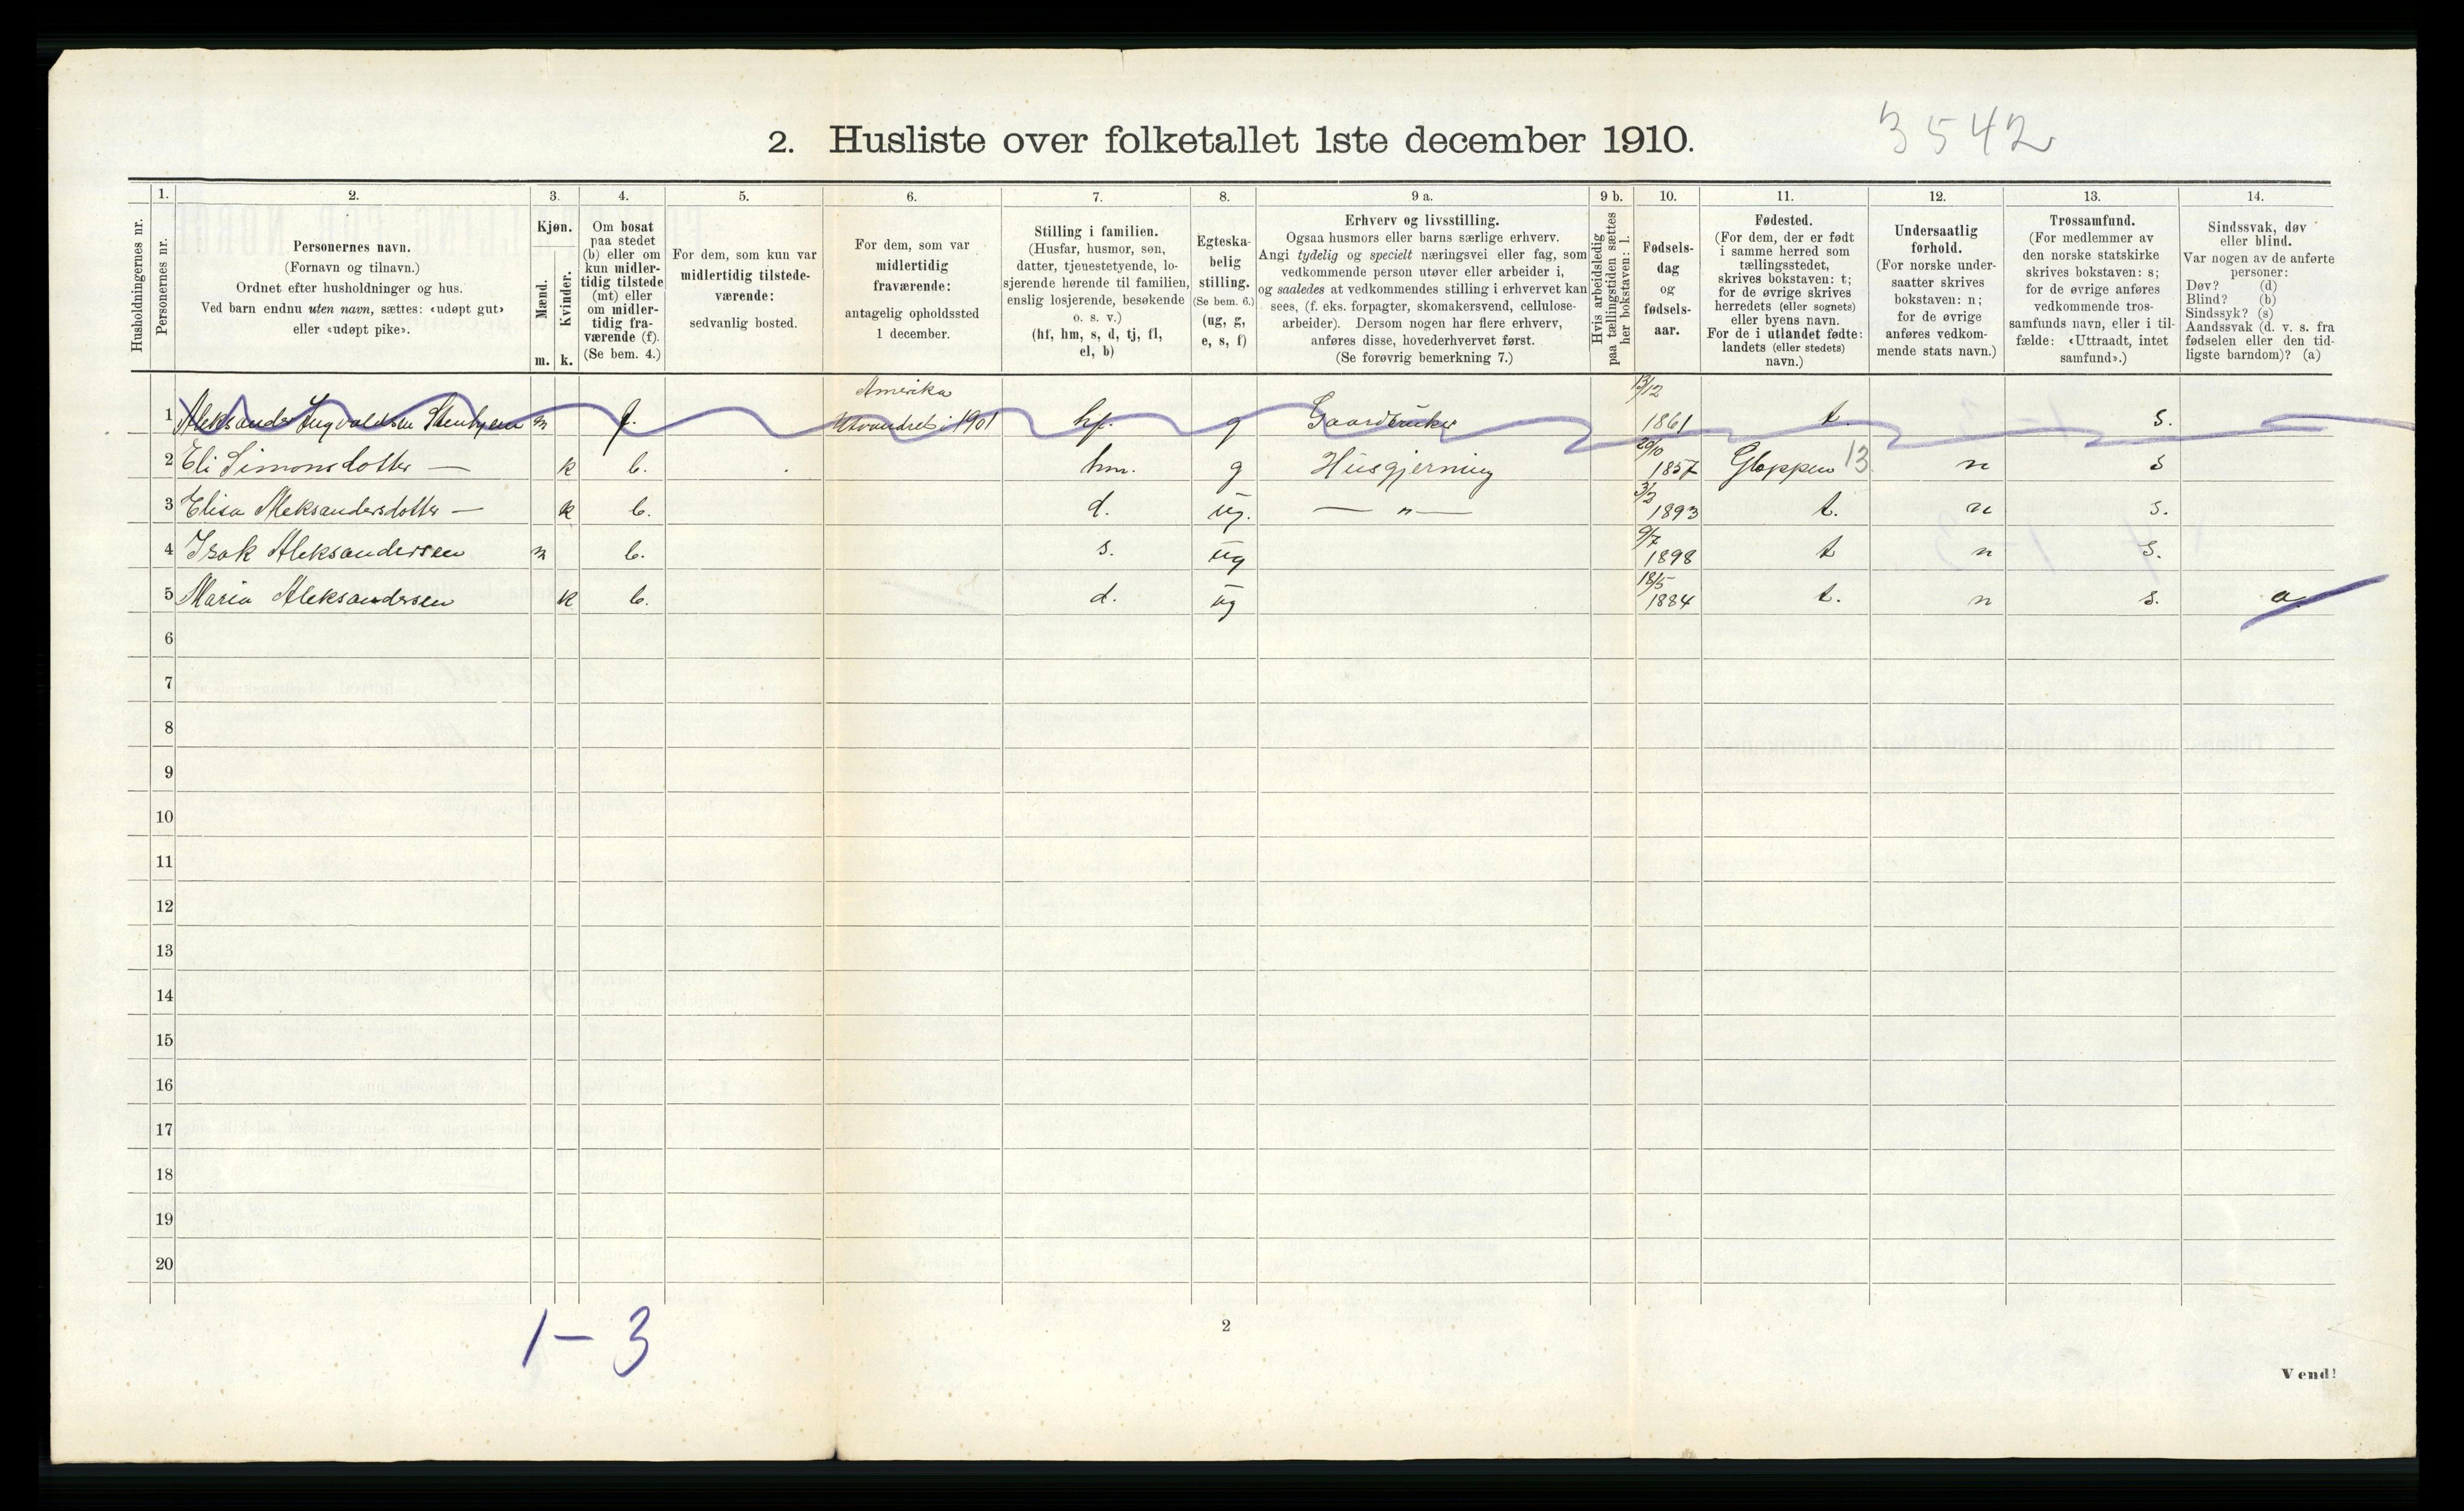 2. Husliste over folketallet 1ste december 1910.
3542
1. 2. 3. 4. 5. 6. 7. 8. 9 a. 9 b. 10. 11. 12. 13. 14.
Husholdningernes nr.
Personernes nr.
Personernes navn.
(Fornavn og tilnavn.)
Ordnet efter husholdninger og hus.
Ved barn endnu uten navn, sættes: «udøpt gut»
eller «udøpt pike».
Kjøn.
Mænd.
Kvinder.
m. k.
Om bosat
paa stedet
(b) eller om
kun midler-
tidig tilstede
(mt) eller
om midler-
tidig fra-
værende (f).
(Se bem. 4.)
For dem, som kun var
midlertidig tilstede-
værende:
sedvanlig bosted.
For dem, som var
midlertidig
fraværende:
antagelig opholdssted
1 december.
Stilling i familien.
(Husfar, husmor, søn,
datter, tjenestetyende, lo-
sjerende hørende til familien,
enslig losjerende, besøkende
o. s. v.)
(hf, hm, s, d, tj, fl,
el, b)
Egteska-
belig
stilling.
(Se bem. 6.)
(ug, g,
e, s, f)
Erhverv og livsstilling.
Ogsaa husmors eller barns særlige erhverv.
Angi tydelig og specielt næringsvei eller fag, som
vedkommende person utøver eller arbeider i,
og saaledes at vedkommendes stilling i erhvervet kan
sees, (f. eks. forpagter, skomakersvend, cellulose-
arbeider). Dersom nogen har flere erhverv,
anføres disse, hovederhvervet først.
(Se forøvrig bemerkning 7.)
Hvis arbeidsledig
paa tællingstiden sættes
her bokstaven: l.
Fødsels-
dag
og
fødsels-
aar.
Fødested.
(For dem, der er født
i samme herred som
tællingsstedet,
skrives bokstaven: t;
for de øvrige skrives
herredets (eller sognets)
eller byens navn.
For de i utlandet fødte:
landets (eller stedets)
navn.)
Undersaatlig
forhold.
(For norske under-
saatter skrives
bokstaven: n;
for de øvrige
anføres vedkom-
mende stats navn.)
Trossamfund.
(For medlemmer av
den norske statskirke
skrives bokstaven: s;
for de øvrige anføres
vedkommende tros-
samfunds navn, eller i til-
fælde: «Uttraadt, intet
samfund».)
Sindssvak, døv
eller blind.
Var nogen av de anførte
personer:
Døv? (d)
Blind? (b)
Sindssyk? (s)
Aandssvak (d. v. s. fra
fødselen eller den tid-
ligste barndom)? (a)
Amerika 13/12
1 Aleksander Ingvaldsen m f. Utvandret i 1901 hf. g Gaardbruker 1861 t. s.
2 Eli Simonsdotter — k b. hm. g Husgjerning 20/10 1857 Gloppen 13 n s
3 Elisa Aleksandersdotter — k b. d. ug. — " — 3/2 1893 t. n s.
4 Isak Aleksandersen m b. s. ug 9/7 1898 t n s.
5 Maria Aleksandersen k b. d. ug 18/5 1884 t. n s. a.
6
7
8
9
10
11
12
13
14
15
16
17
18
19
20
1 – 3
2
Vend!